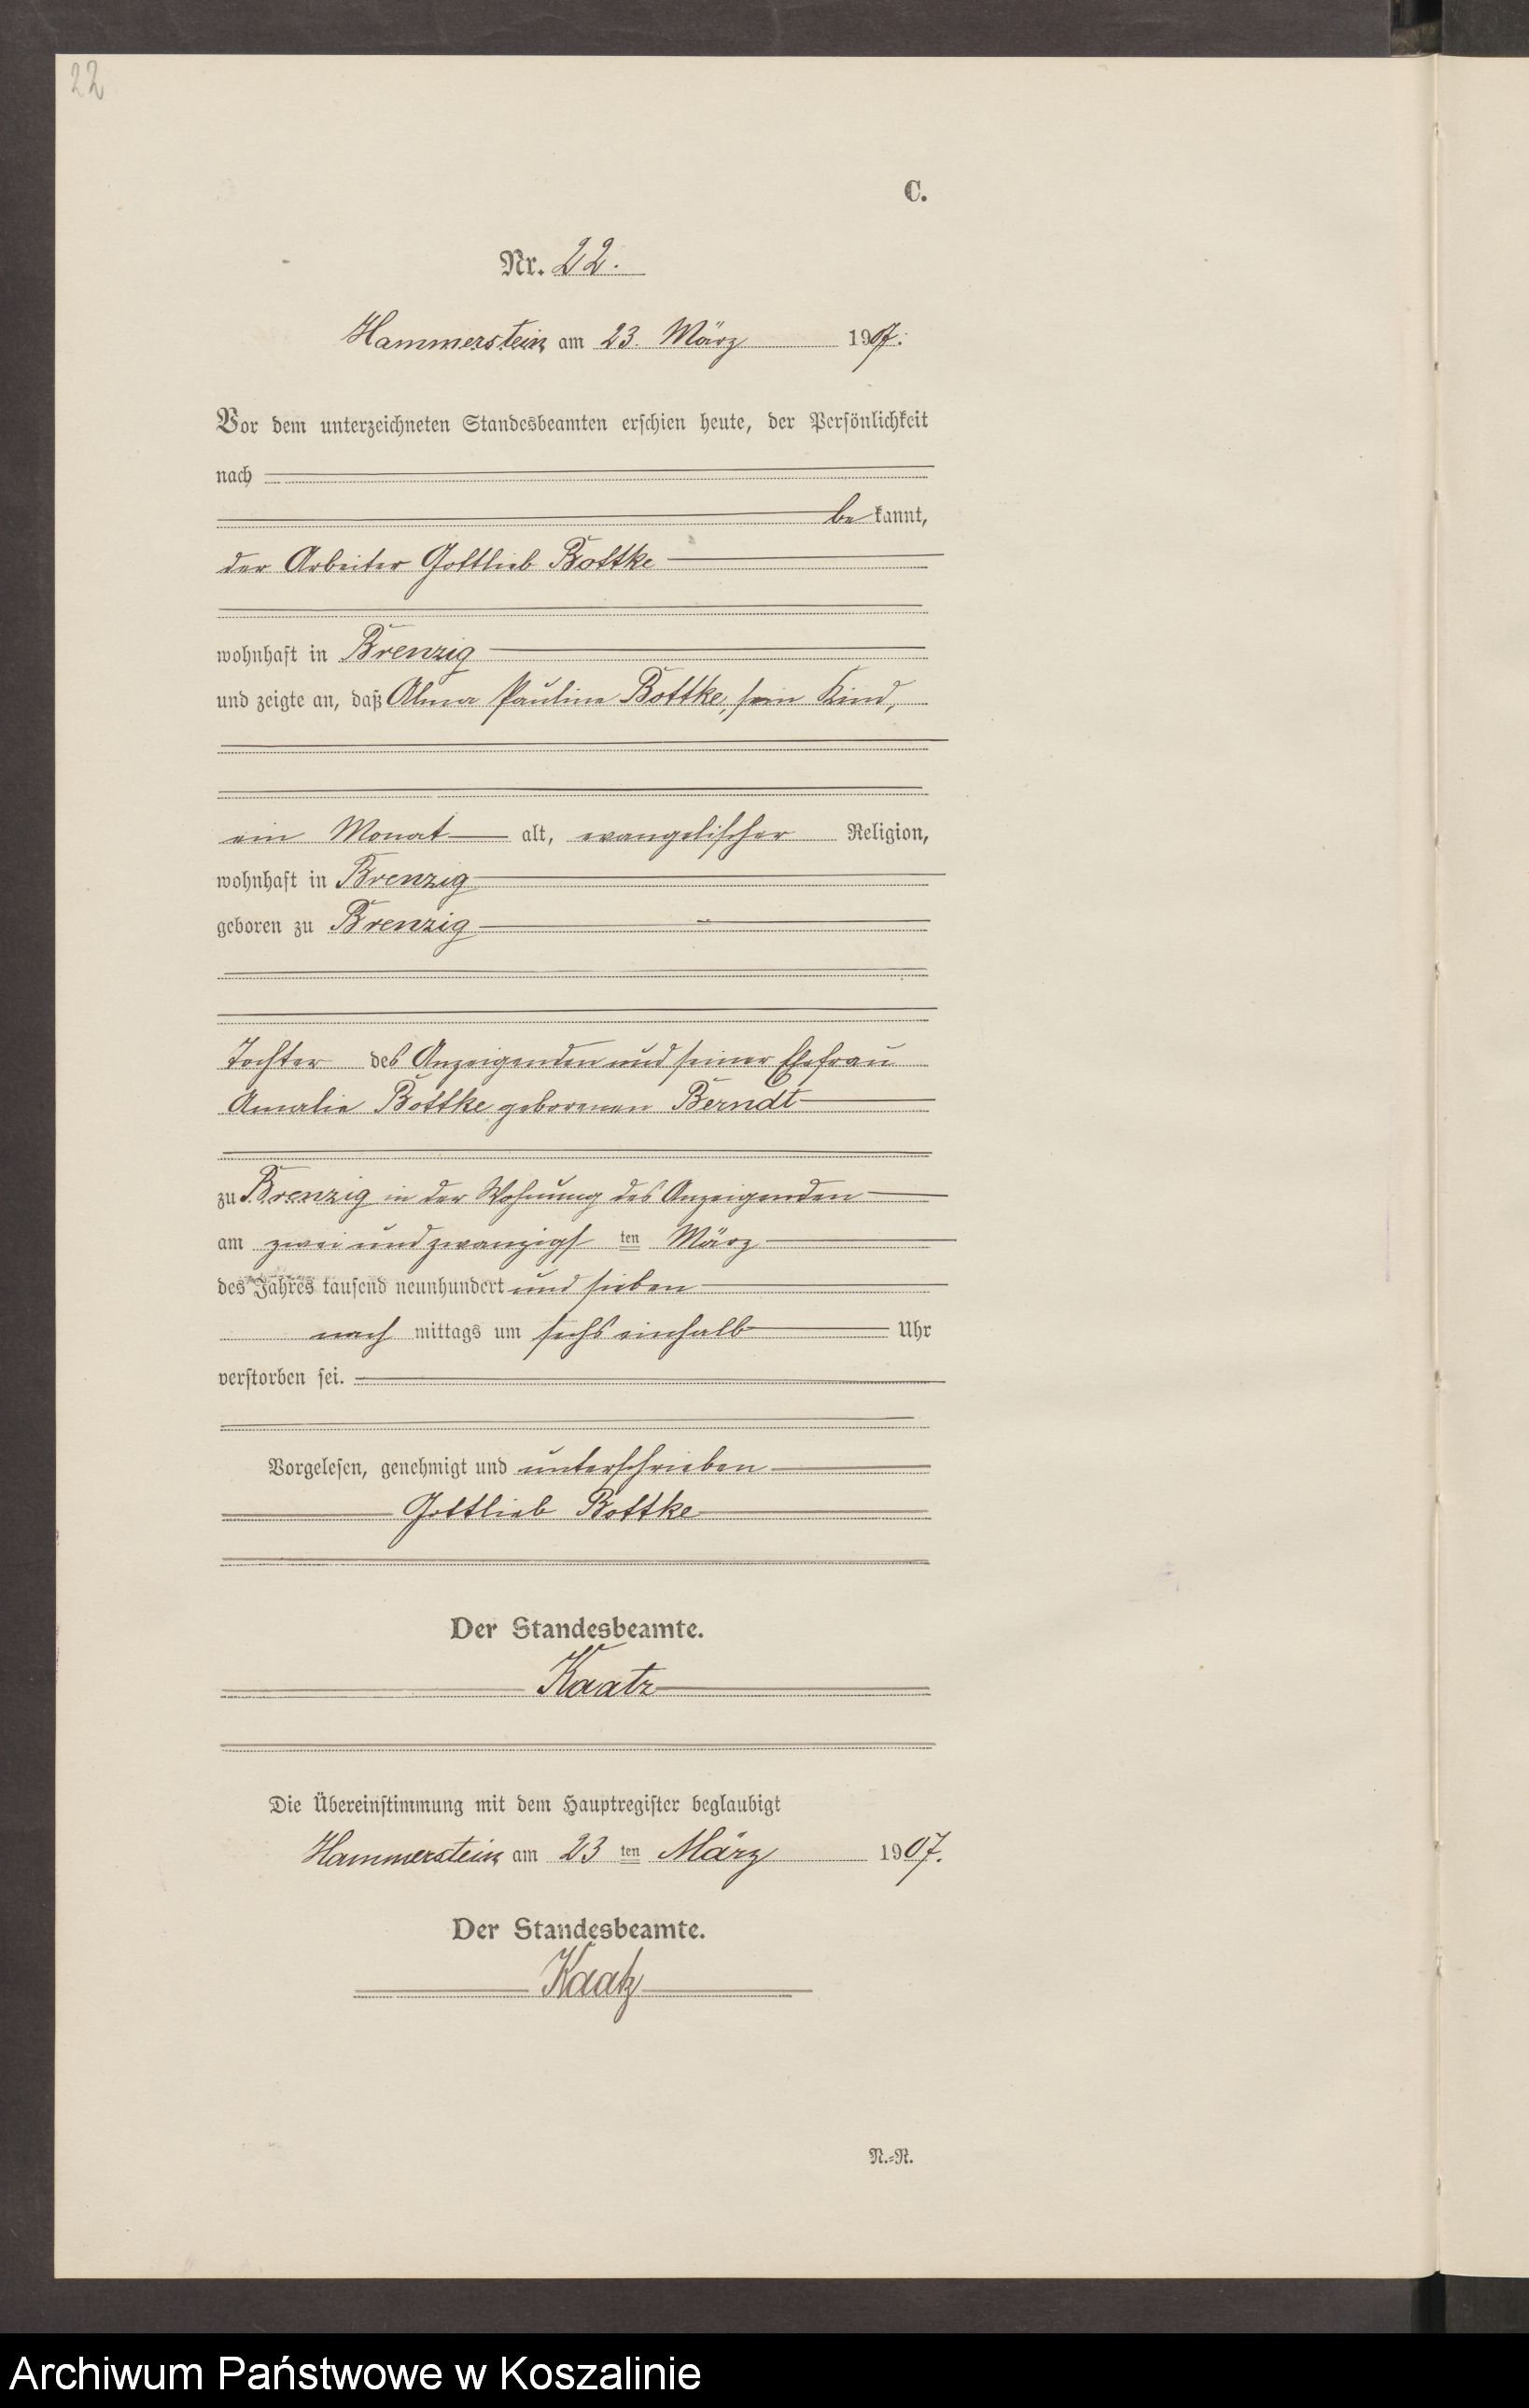 22
C.
Nr. 22.
Hammerstein am 23. März 1907.
Vor dem unterzeichneten Standesbeamten erschien heute, der Persönlichkeit
nach
be kannt,
der Arbeiter Gottlieb Bottke
wohnhaft in Brenzig
und zeigte an, daß Alma Pauline Bottke, sein Kind,
ein Monat alt, evangelischer Religion,
wohnhaft in Brenzig
geboren zu Brenzig
Tochter des Anzeigenden und seiner Ehefrau
Amalie Bottke geborenen Berndt
zu Brenzig in der Wohnung des Anzeigenden
am zwei und zwanzigs ten März
des Jahres tausend neunhundert und sieben
nach mittags um sechs einhalb Uhr
verstorben sei.
Vorgelesen, genehmigt und unterschrieben
Gottlieb Bottke
Der Standesbeamte.
Kaatz
Die Übereinstimmung mit dem Hauptregister beglaubigt
Hammerstein am 23 ten März 1907.
Der Standesbeamte.
Kaatz
N.=R.
Archiwum Państwowe w Koszalinie